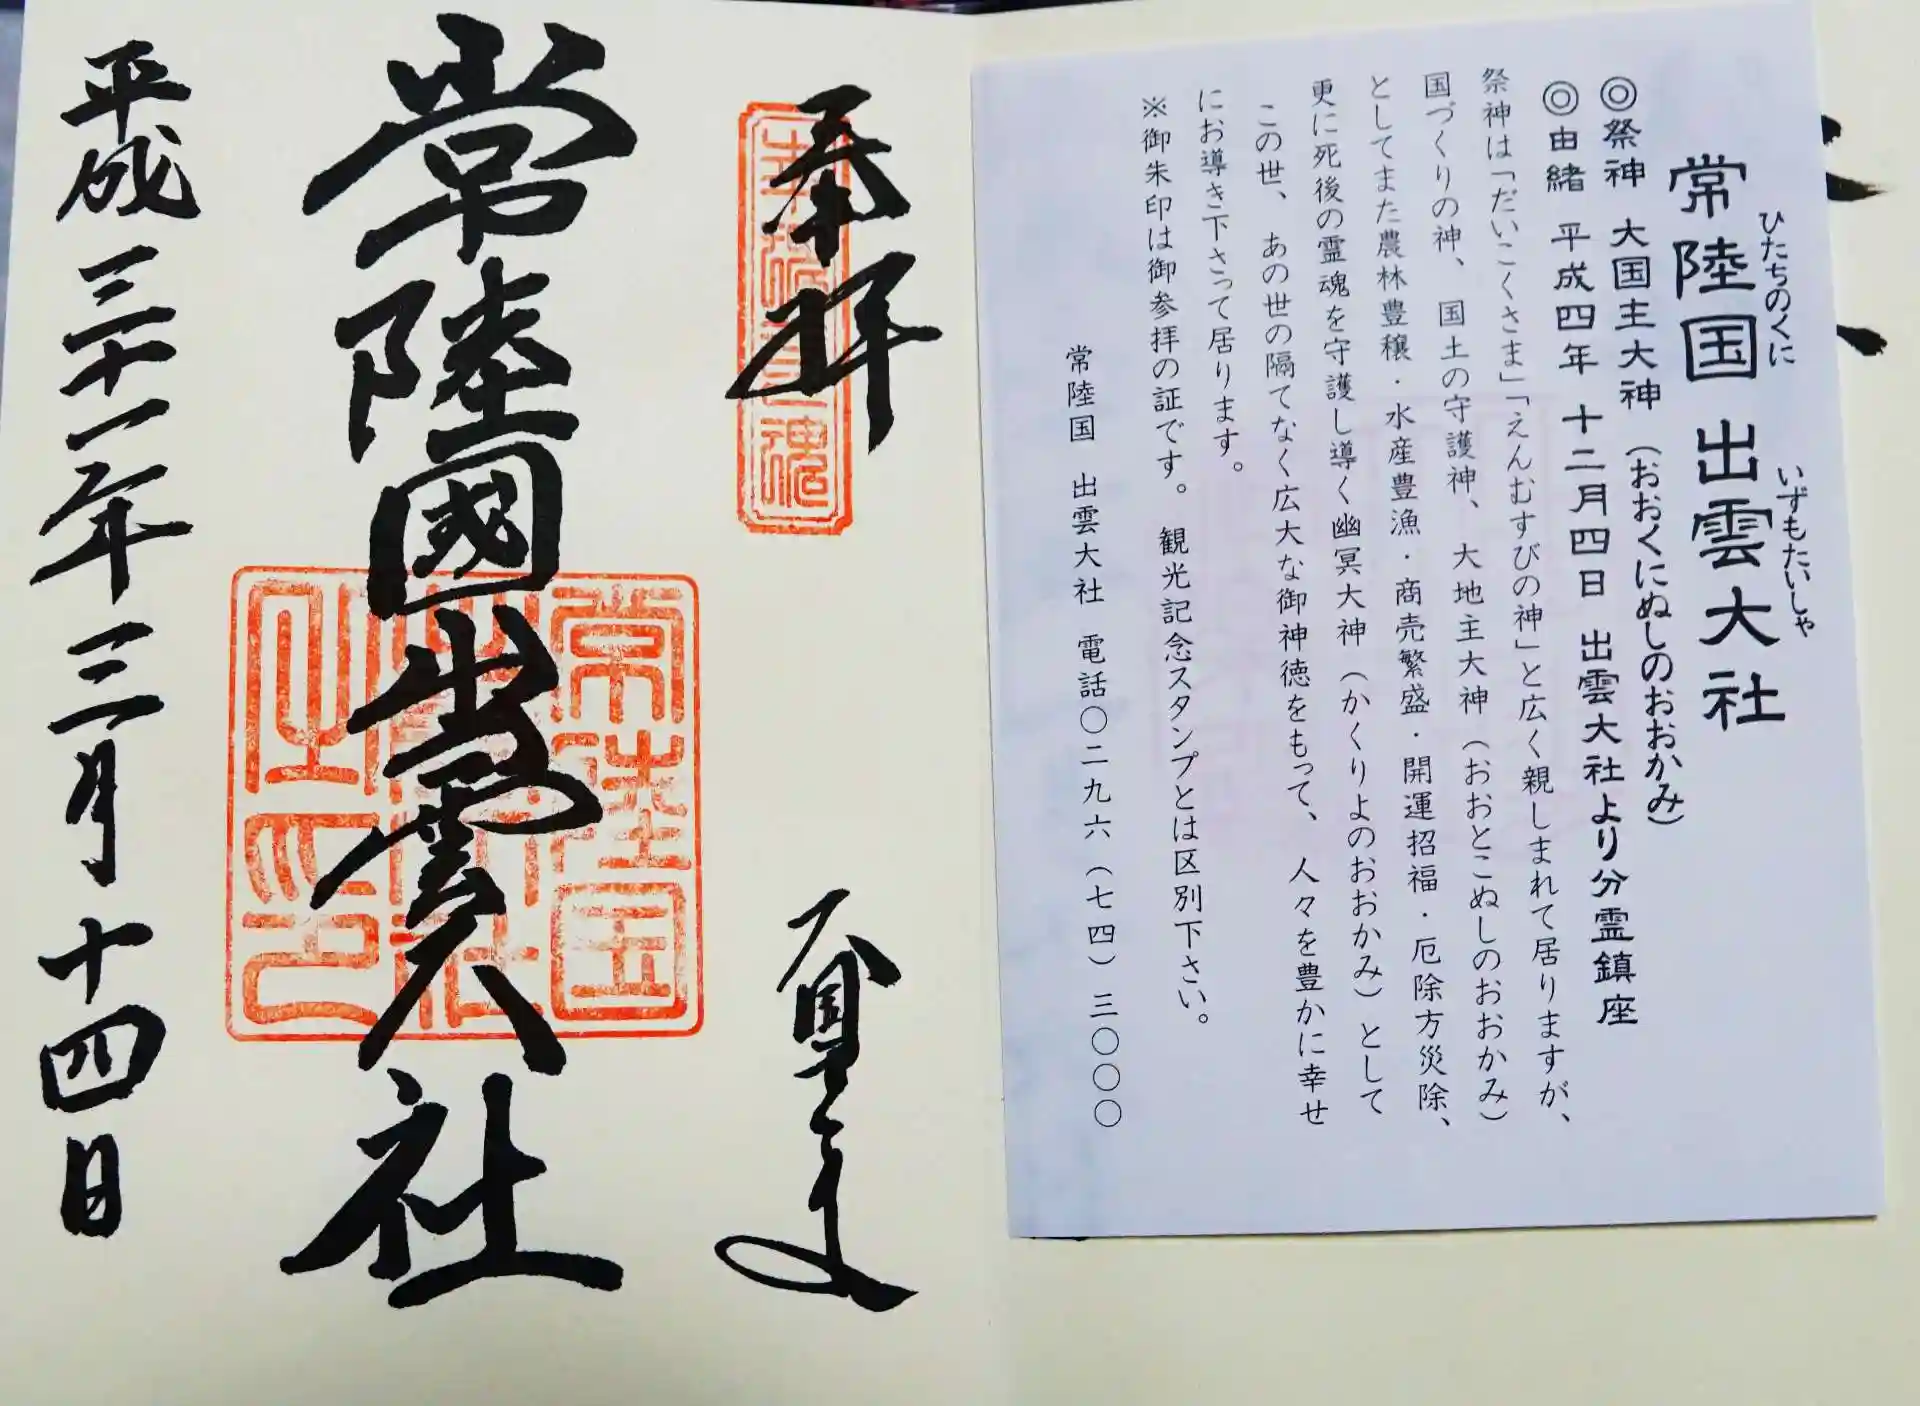 常陸国 出雲大社
ひたちのくに いずもたいしゃ
◎祭神 大国主大神 （おおくにぬしのおおかみ）
◎由緒 平成四年 十二月四日 出雲大社より分霊鎮座
祭神は「だいこくさま」「えんむすびの神」と広く親しまれて居りますが、
国づくりの神、国土の守護神、大地主大神（おおとこぬしのおおかみ）
としてまた農林豊穣・水産豊漁・商売繁盛・開運招福・厄除方災除、
更に死後の霊魂を守護し導く幽冥大神（かくりよのおおかみ）として
この世、あの世の隔てなく広大な御神徳をもって、人々を豊かに幸せ
にお導き下さって居ります。
※御朱印は御参拝の証です。観光記念スタンプとは区別下さい。
常陸国 出雲大社 電話〇二九六（七四）三〇〇〇
奉拝
常陸國出雲大社
常陸国出雲大社之印
平成三十一年三月十四日